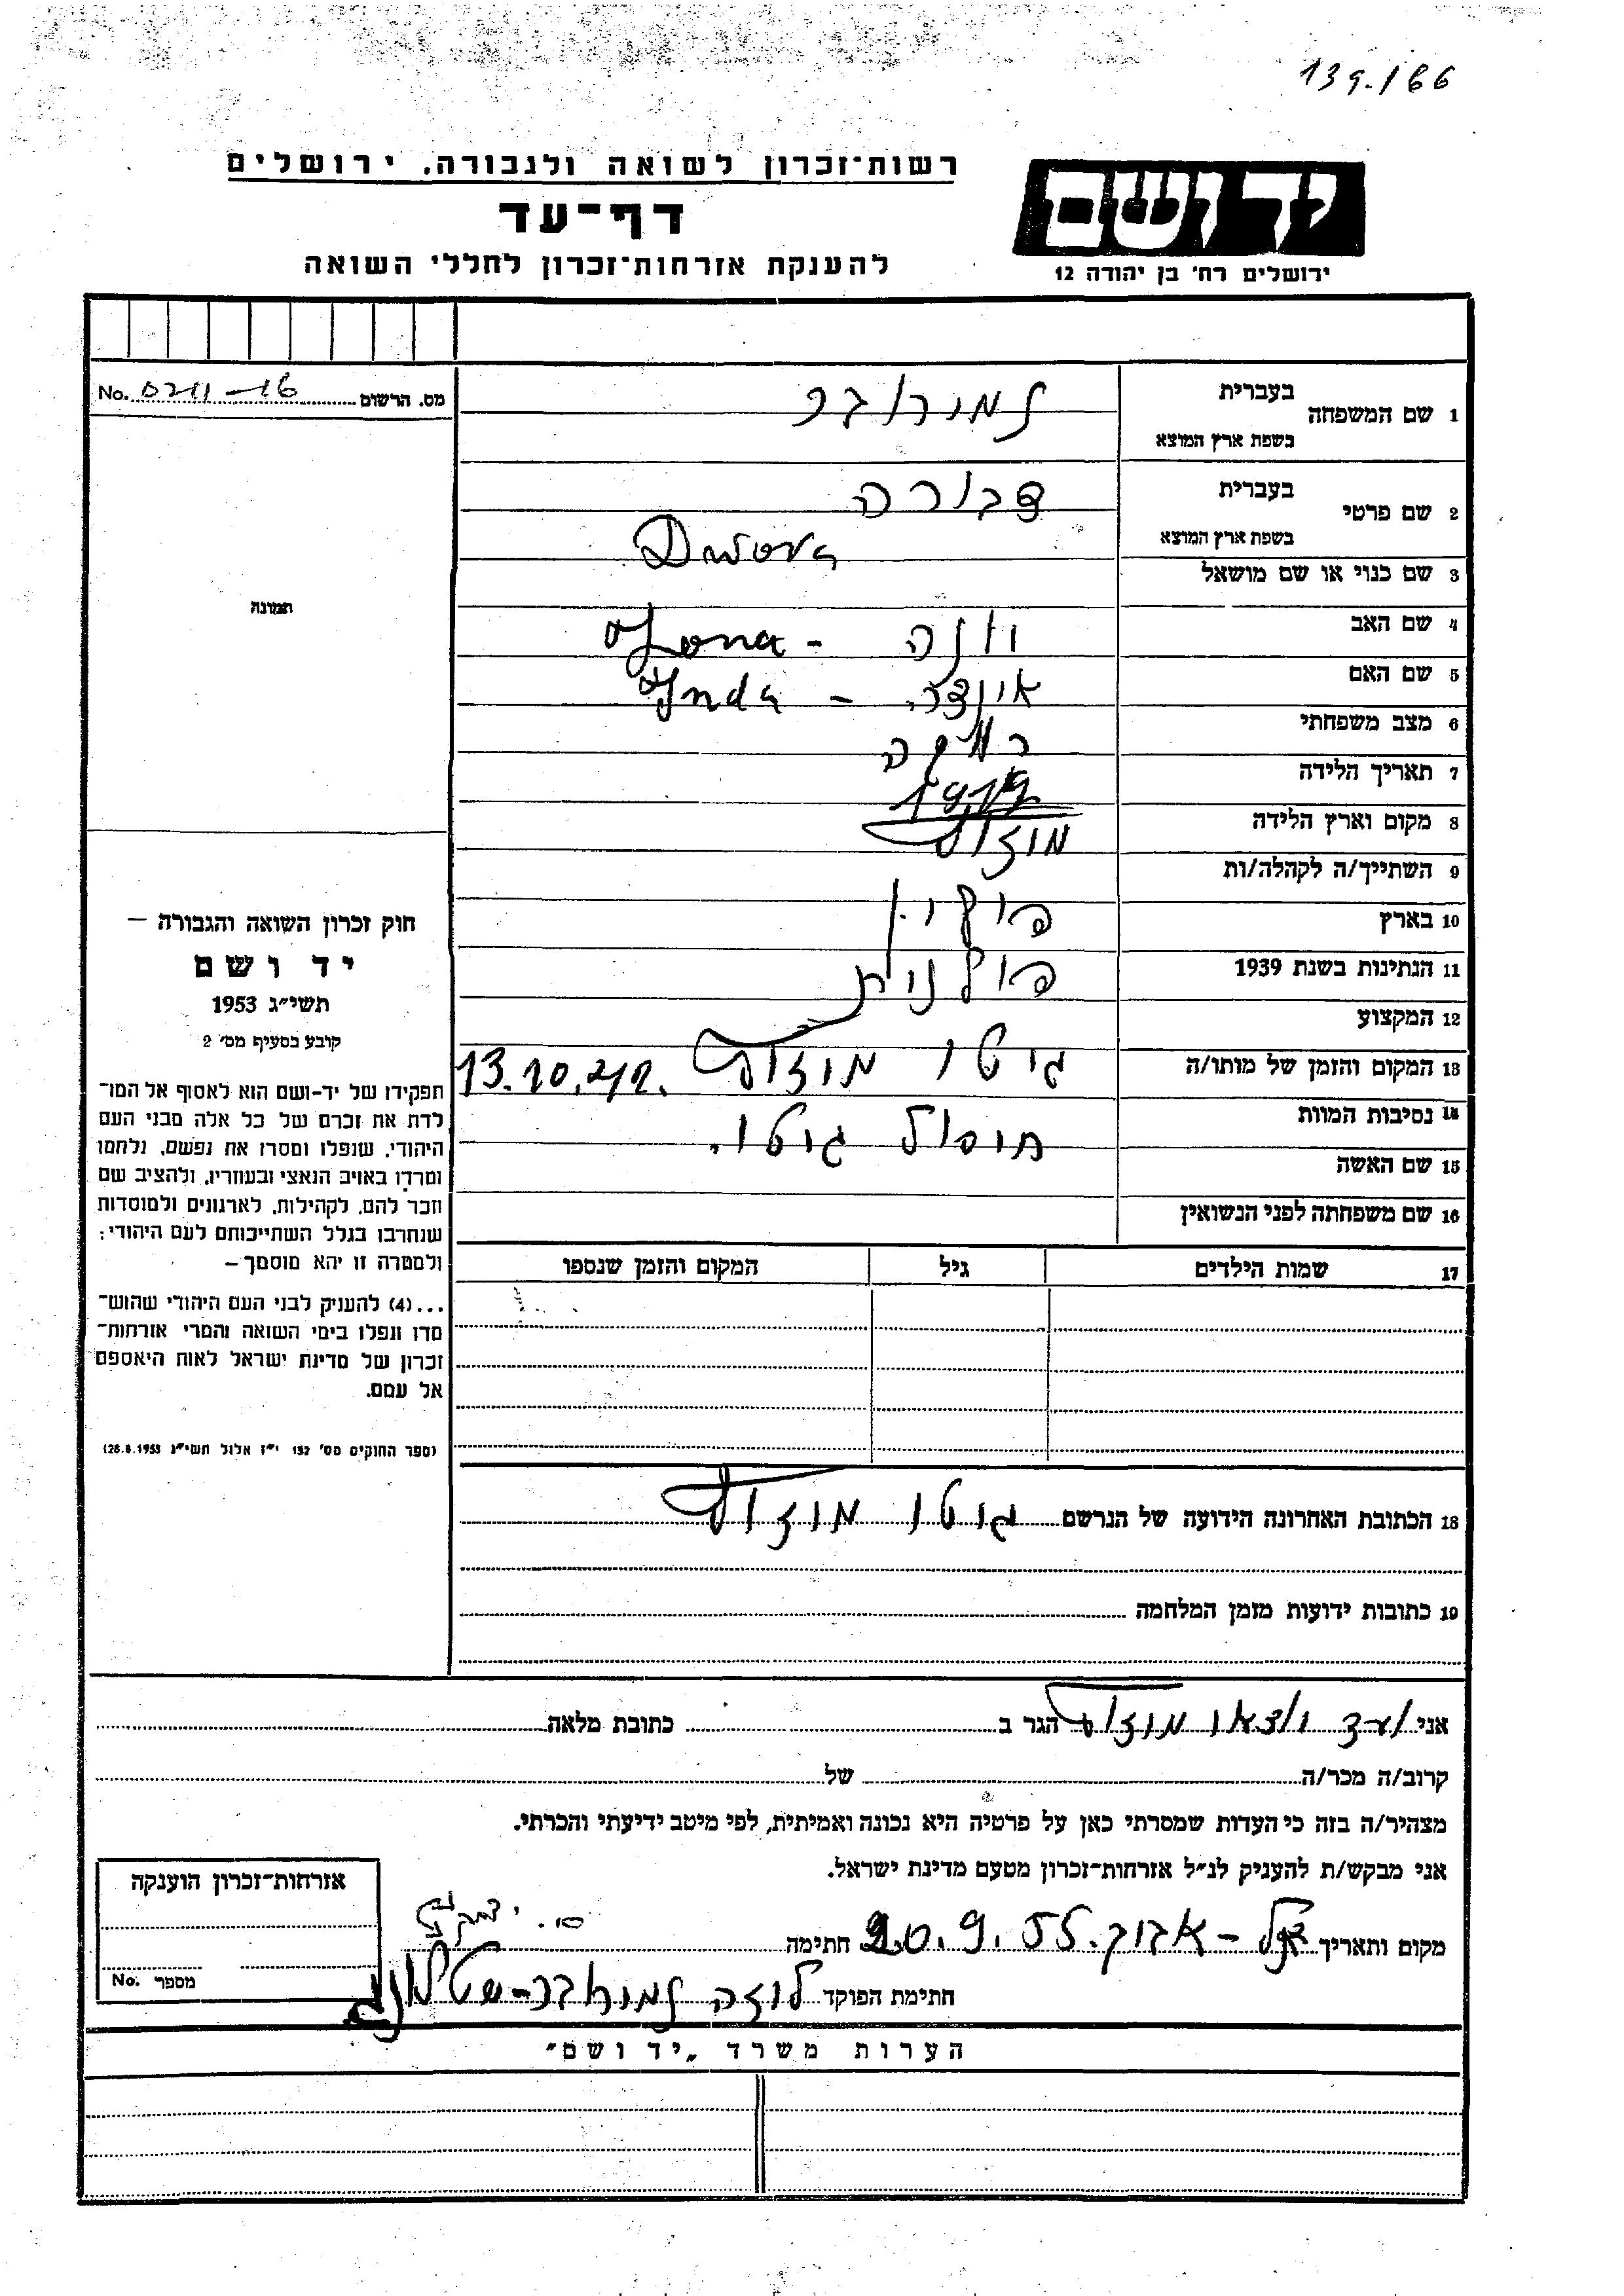 139.166
רשות־זכרון לשואה ולגבורה, ירושלים
דף־עד
להענקת אזרחות־זכרון לחללי השואה
יד ושם
ירושלים רח' בן יהודה 12
מס. הרשום No.
1 שם המשפחה
בעברית
בשפת ארץ המוצא
2 שם פרטי
בעברית דבורה
בשפת ארץ המוצא Dwora
3 שם כנוי או שם מושאל
4 שם האב יונה - Jona
5 שם האם אינדה - Inda
6 מצב משפחתי רווקה
7 תאריך הלידה
8 מקום וארץ הלידה
9 השתייך/ה לקהלה/ות
10 בארץ פולין
11 הנתינות בשנת 1939 פולנית
12 המקצוע
13 המקום והזמן של מותו/ה גיטו 13.10.42.
14 נסיבות המוות חיסול גיטו.
15 שם האשה
16 שם משפחתה לפני הנשואין
17 שמות הילדים גיל המקום והזמן שנספו
תמונה
חוק זכרון השואה והגבורה –
יד ושם
תשי"ג 1953
קובע בסעיף מס' 2
תפקידו של יד-ושם הוא לאסוף אל המו־
לדת את זכרם של כל אלה מבני העם
היהודי, שנפלו ומסרו את נפשם, נלחמו
ומרדו באויב הנאצי ובעוזריו, ולהציב שם
וזכר להם, לקהילות, לארגונים ולמוסדות
שנחרבו בגלל השתייכותם לעם היהודי;
ולמטרה זו יהא מוסמך –
...(4) להעניק לבני העם היהודי שהוש־
מדו ונפלו בימי השואה והמרי אזרחות־
זכרון של מדינת ישראל לאות היאספם
אל עמם.
(ספר החוקים מס' 132 י"ז אלול תשי"ג 28.8.1953)
18 הכתובת האחרונה הידועה של הנרשם גיטו
19 כתובות ידועות מזמן המלחמה
אני ועד הגר ב כתובת מלאה
קרוב/ה מכר/ה של
מצהיר/ה בזה כי העדות שמסרתי כאן על פרטיה היא נכונה ואמיתית, לפי מיטב ידיעתי והכרתי.
אני מבקש/ת להעניק לנ"ל אזרחות־זכרון מטעם מדינת ישראל.
מקום ותאריך תל - אביב. 20.9.55 חתימה
חתימת הפוקד
אזרחות־זכרון הוענקה
מספר No.
הערות משרד „יד ושם"